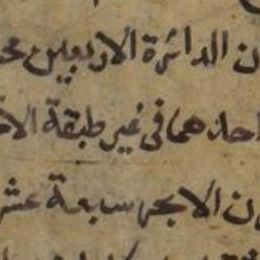 ن الدائرة الاربعين
احدهما فى غير طبقة الا
ن الابجر سبعة عشر